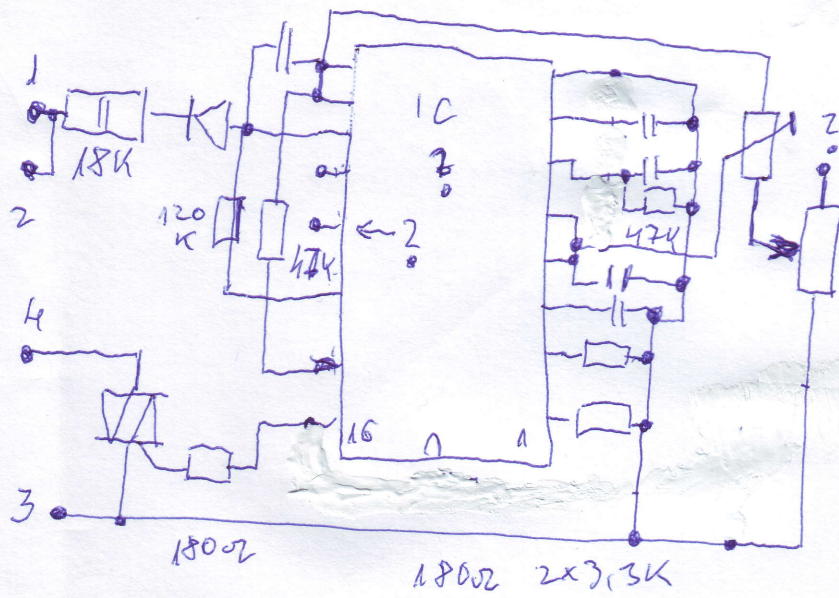 1
18K
2
120
K
47K
IC
?
← ?
47K
?
4
16
1
3
180Ω
180Ω 2x3,3K